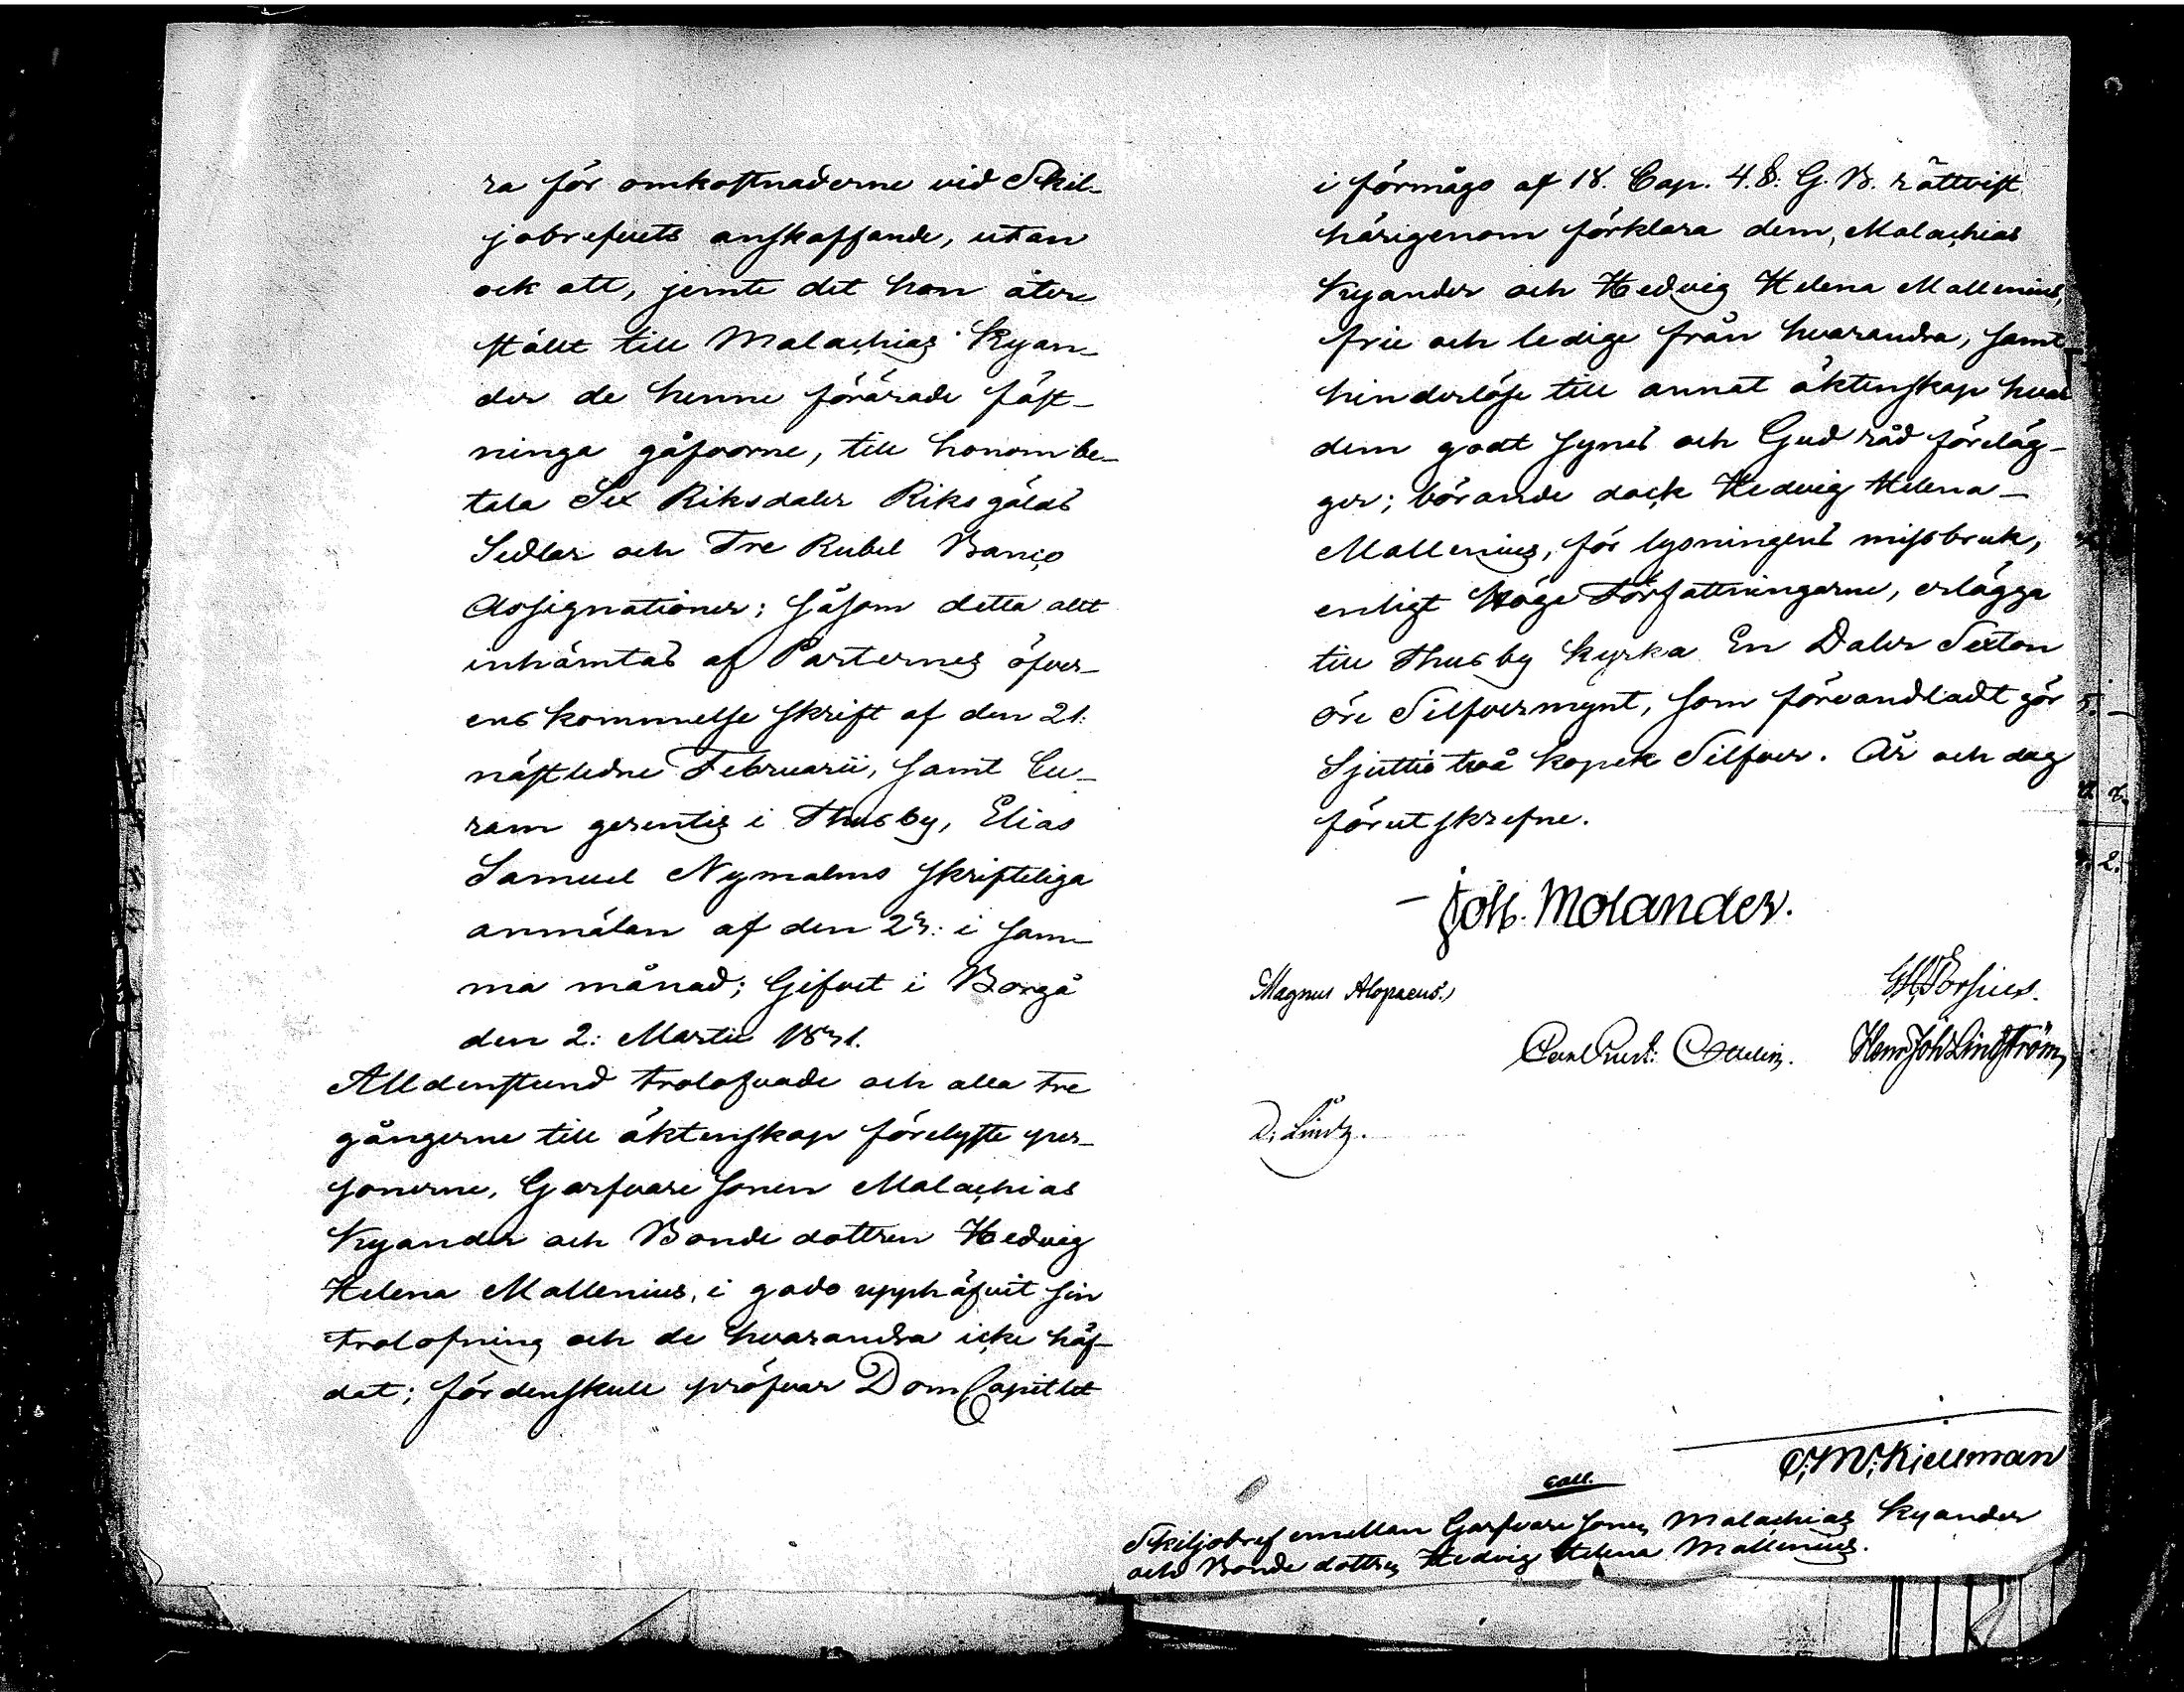 ra för omkostnaderne vid Skil-
jobrefvets anskaffande, utan
ock att, jemte det hon åter-
stält till Malachias Kyan-
der de henne förärade fäst-
ninga gåfvorne, till honom be-
tala Sex Riksdaler Riksgälds
Sedlar och Tre Rubel Banco
Assignationer; såsom detta allt
inhämtas af Parternes öfver-
enskommelse skrift af den 21:
nästledne Februarii, samt Cu-
ram gerentis i Thusby, Elias
Samuel Nymalms skrifteliga
anmälan af den i sam-
ma månad; Gifvet i Borgå
den 2: Martii 1831.
Alldenstund trolofvade och alla tre
gångerne till äktenskap förelyste per-
sonerne, Garfvare sonen Malachias
Kyander och Bonde dottren Hedvig
Helena Mallenius, i godo upphäfvit sin
trolofning och de hvarandra icke häf-
dat; fördenskull pröfvar DomCapitlet
i förmågo af 18. Cap. 4.§. G.B. rättvist
härigenom förklara dem, Malachias
Kyander och Hedvig Helena Mallenius,
frie och ledige från hvarandra, samt
hinderlöse till annat äktenskap hvar
dem godt synes och Gud råd föreläg-
ger; börande dock Hedvig Helena
Mallenius, för lysningens missbruk,
enligt Höga Författningarne, erlägga
till Thusby kyrka En Daler Sexton
öre Silfvermynt, som förvandladt gör
Sjuttio två kopek Silfver. År och dag
förutskrefne.
Joh. Molander.
Magnus Alopaeus.
Carl Gust. Ottelin.
Henr Joh Lindström,
Kjellman
coll.
Skiljobref emellan Garfvare sonen Malachias Kyander
och Bonde dottren Hedvig Helena Mallenius.